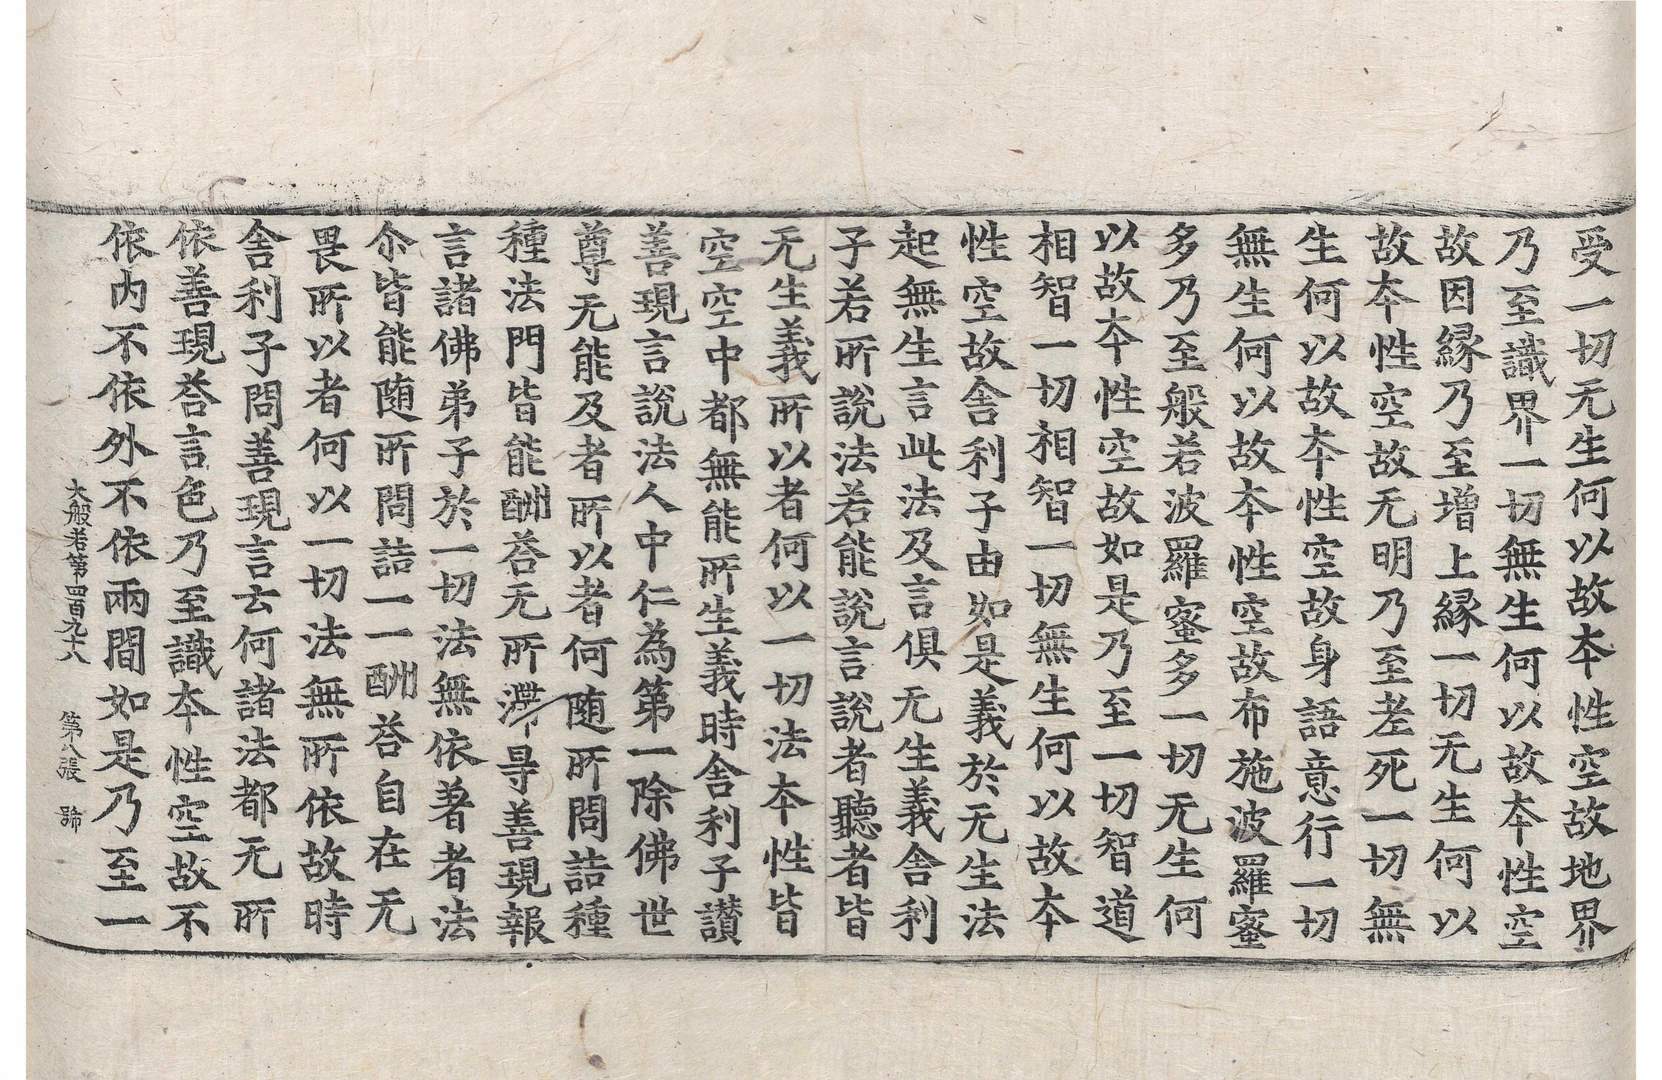 受一切无生何以故本性空故地界
乃至識界一切無生何以故本性空
故因緣乃至增上緣一切无生何以
故本性空故无明乃至老死一切無
生何以故本性空故身語意行一切
無生何以故本性空故布施波羅蜜
多乃至般若波羅蜜多一切无生何
以故本性空故如是乃至一切智道
相智一切相智一切無生何以故本
性空故舍利子由如是義於无生法
起無生言此法及言俱无生義舍利
子若所說法若能說言說者聽者皆
无生義所以者何以一切法本性皆
空空中都無能所生義時舍利子讃
善現言說法人中仁為第一除佛世
尊无能及者所以者何随所問詰種
種法門皆能酬荅无所滯㝵善現報
言諸佛弟子於一切法無依著者法
尒皆能随所問詰一一酬荅自在无
畏所以者何以一切法無所依故時
舍利子問善現言云何諸法都无所
依善現荅言色乃至識本性空故不
依内不依外不依兩間如是乃至一
大般若第四百九十八 第八張 歸